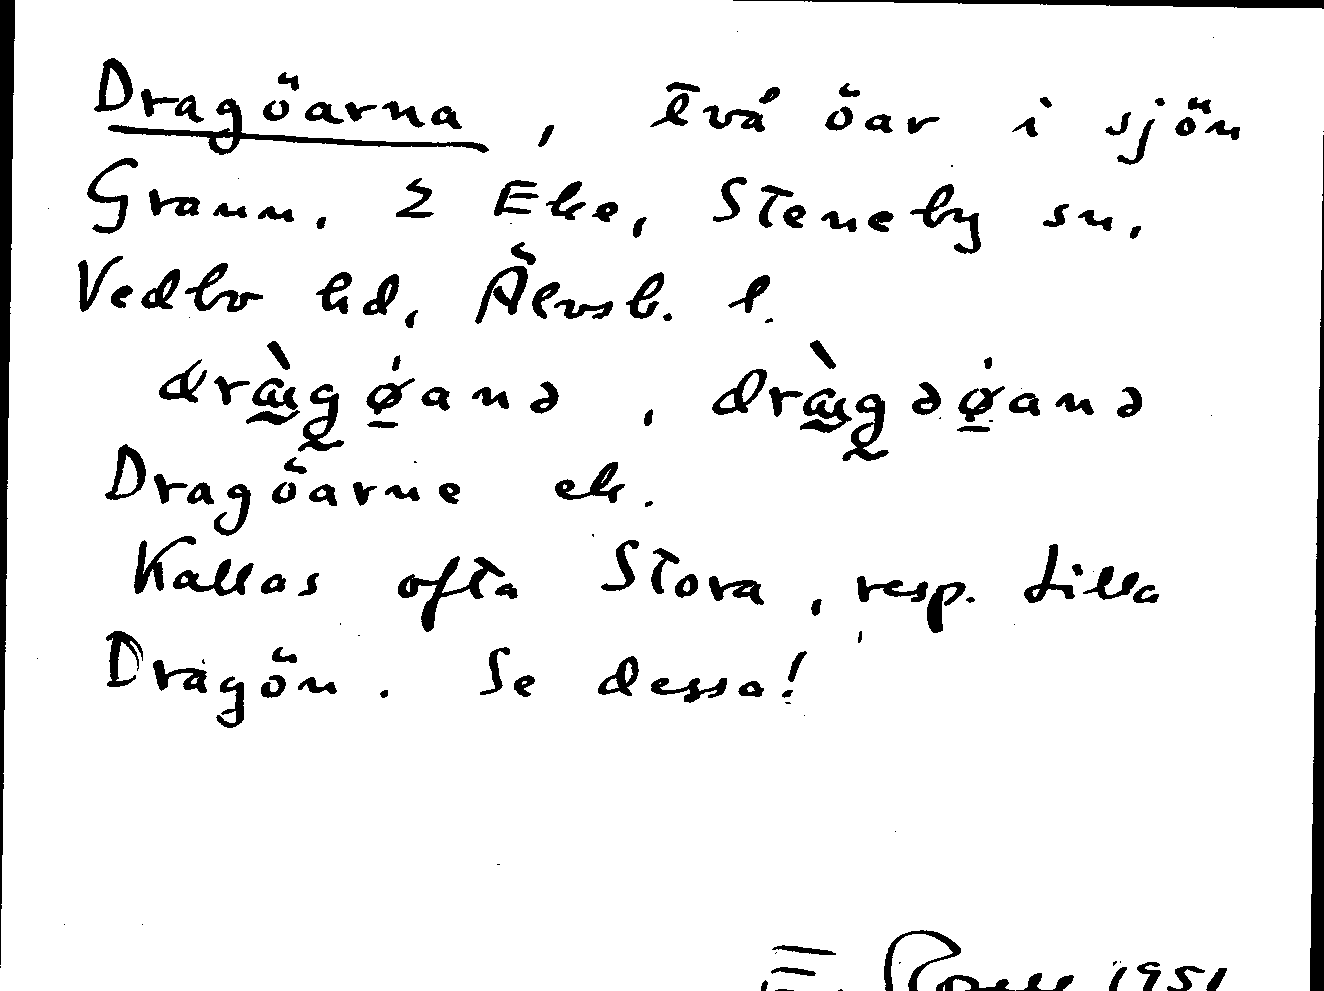 Dragöarna, två öar i sjön
Grann. 2 Eke, Steneby sn,
Vedbo hd, Älvsb. l.
dràgǿanə, dràgəǿanə
Dragöarne ek.
Kallas ofta Stora, resp. Lilla
Dragön. Se dessa!
E. 1951